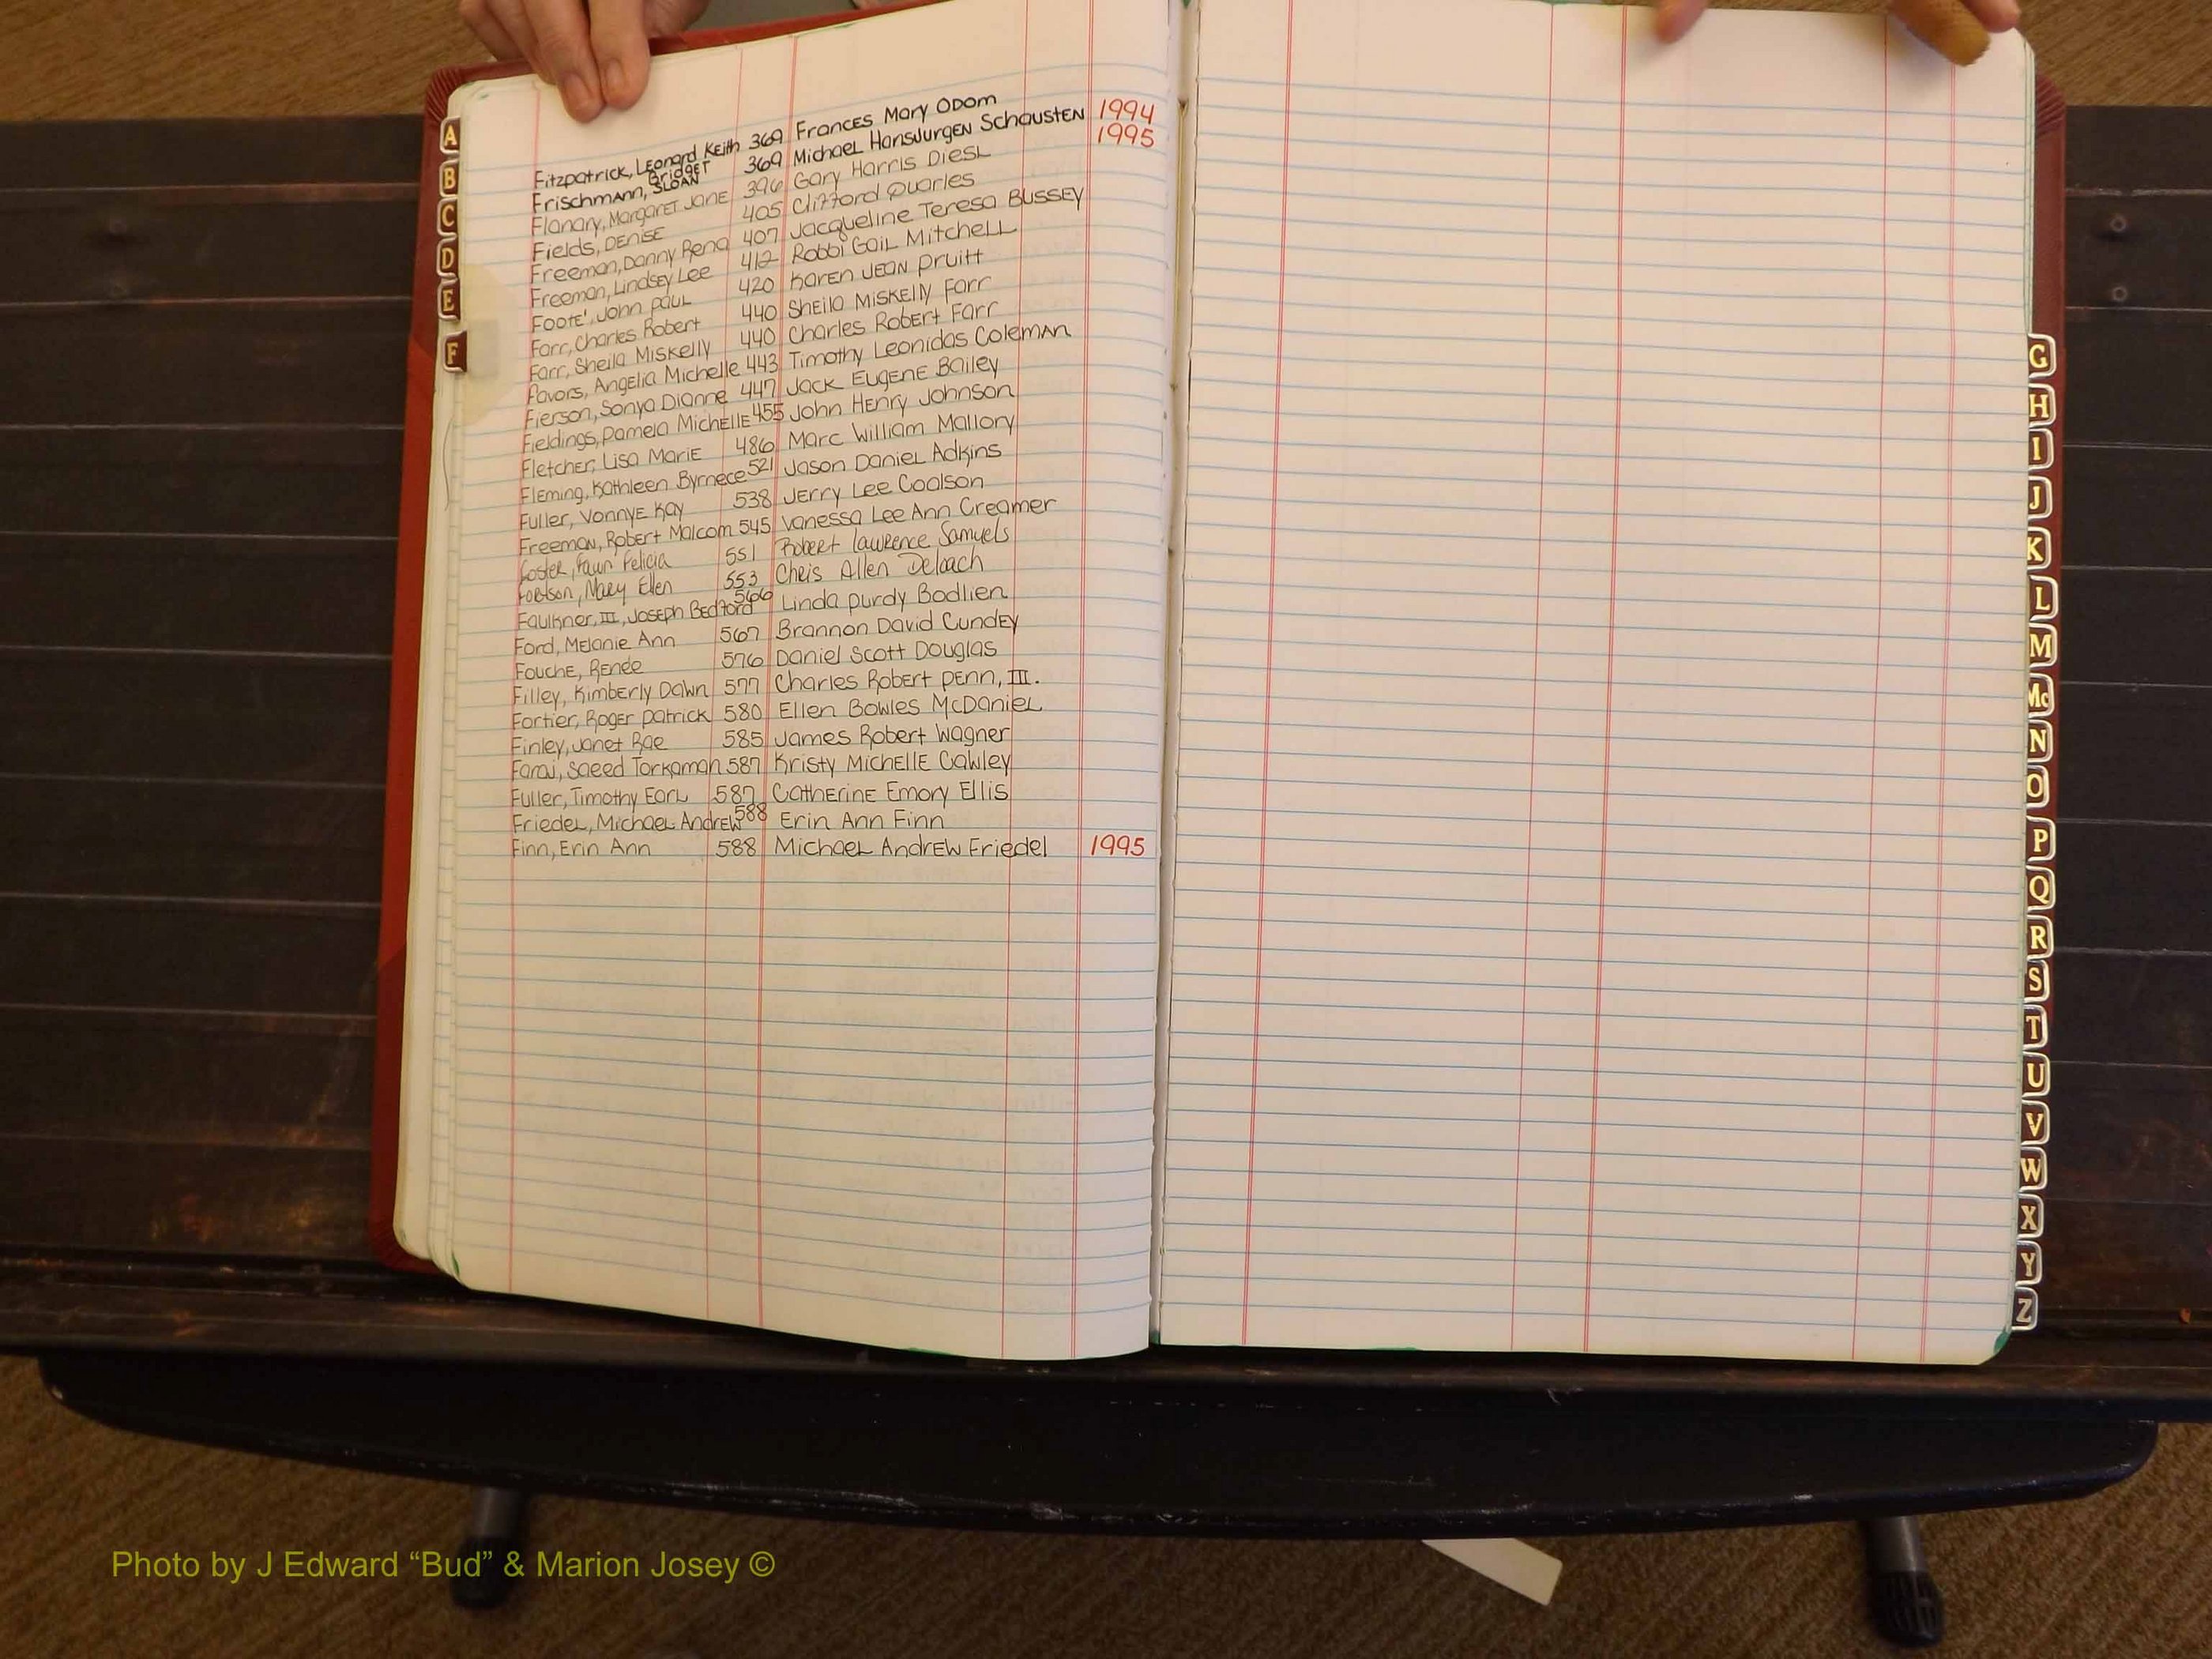 Fitzpatrick, Leonard Keith 369 Frances Mary Odom 1994
Frischmann, Bridget Sloan 369 Michael Hansjurgen Schausten 1995
Flanary, Margaret Jane 396 Gary Harris Diesl
Fields, Denise 405 Clifford Quarles
Freeman, Danny Rena 407 Jacqueline Teresa Bussey
Freeman, Lindsey Lee 412 Robbi Gail Mitchell
Foote', John Paul 420 Karen Jean Pruitt
Farr, Charles Robert 440 Sheila Miskelly Farr
Farr, Sheila Miskelly 440 Charles Robert Farr
Favors, Angelia Michelle 443 Timothy Leonidas Coleman
Fierson, Sonya Dianne 447 Jack Eugene Bailey
Fieldings, Pamela Michelle 455 John Henry Johnson
Fletcher, Lisa Marie 486 Marc William Mallory
Fleming, Kathleen Byrnece 521 Jason Daniel Adkins
Fuller, Vonnye Kay 538 Jerry Lee Coalson
Freeman, Robert Malcom 545 Vanessa Lee Ann Creamer
Foster, Fawn Felicia 551 Robert Lawrence Samuels
Fortson, Mary Ellen 553 Chris Allen Deloach
Faulkner, III, Joseph Bedford 566 Linda Purdy Bodlien
Ford, Melanie Ann 567 Brannon David Cundey
Fouche, Renée 576 Daniel Scott Douglas
Filley, Kimberly Dawn 577 Charles Robert Penn, III.
Fortier, Roger Patrick 580 Ellen Bowles McDaniel
Finley, Janet Rae 585 James Robert Wagner
Faraj, Saeed Torkaman 587 Kristy Michelle Cawley
Fuller, Timothy Earl 587 Catherine Emory Ellis
Friedel, Michael Andrew 588 Erin Ann Finn
Finn, Erin Ann 588 Michael Andrew Friedel 1995
A
B
C
D
E
F
G
H
I
J
K
L
M
Mc
N
O
P
Q
R
S
T
U
V
W
X
Y
Z
Photo by J Edward “Bud” & Marion Josey ©